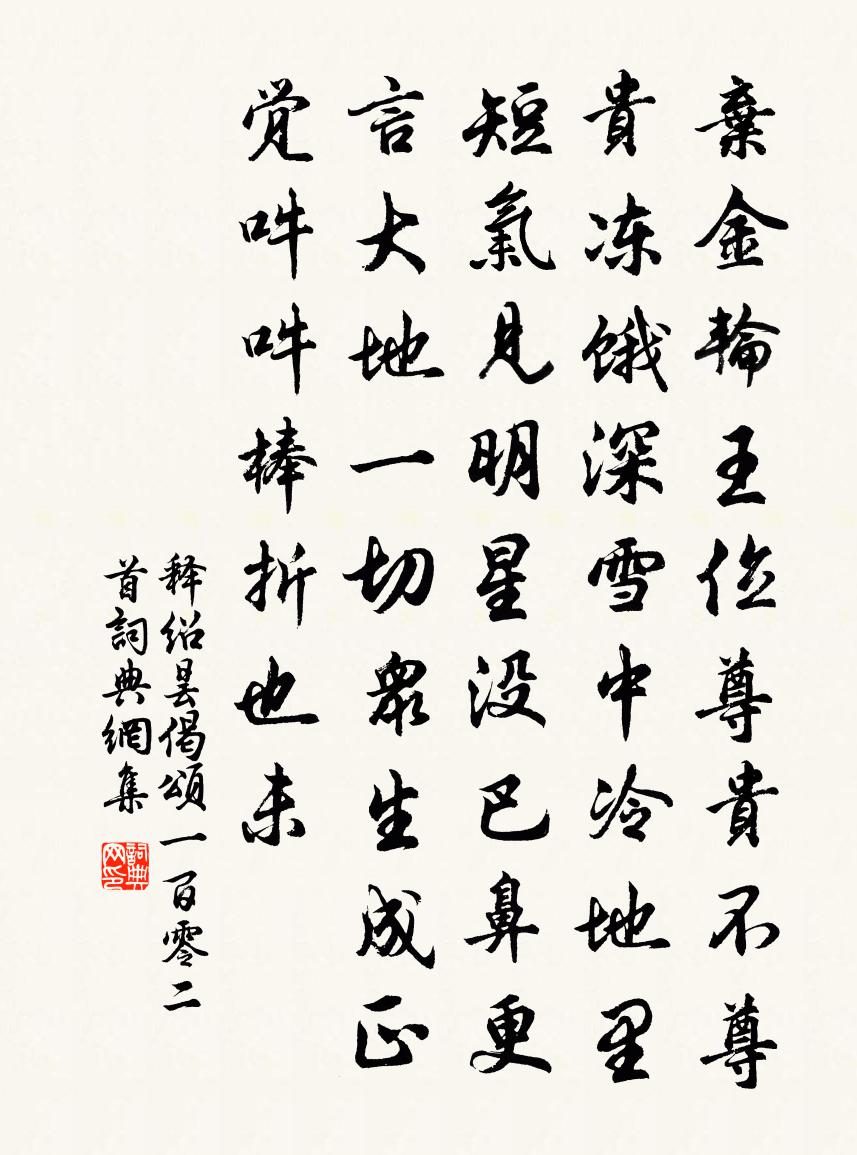 棄金輪王位尊貴不尊
貴冻饿深雪中冷地里
短氣見明星没巴鼻更
言大地一切眾生成正
觉吽吽棒折也未
释绍昙偈頌一百零二
首詞典網集
詞典网印